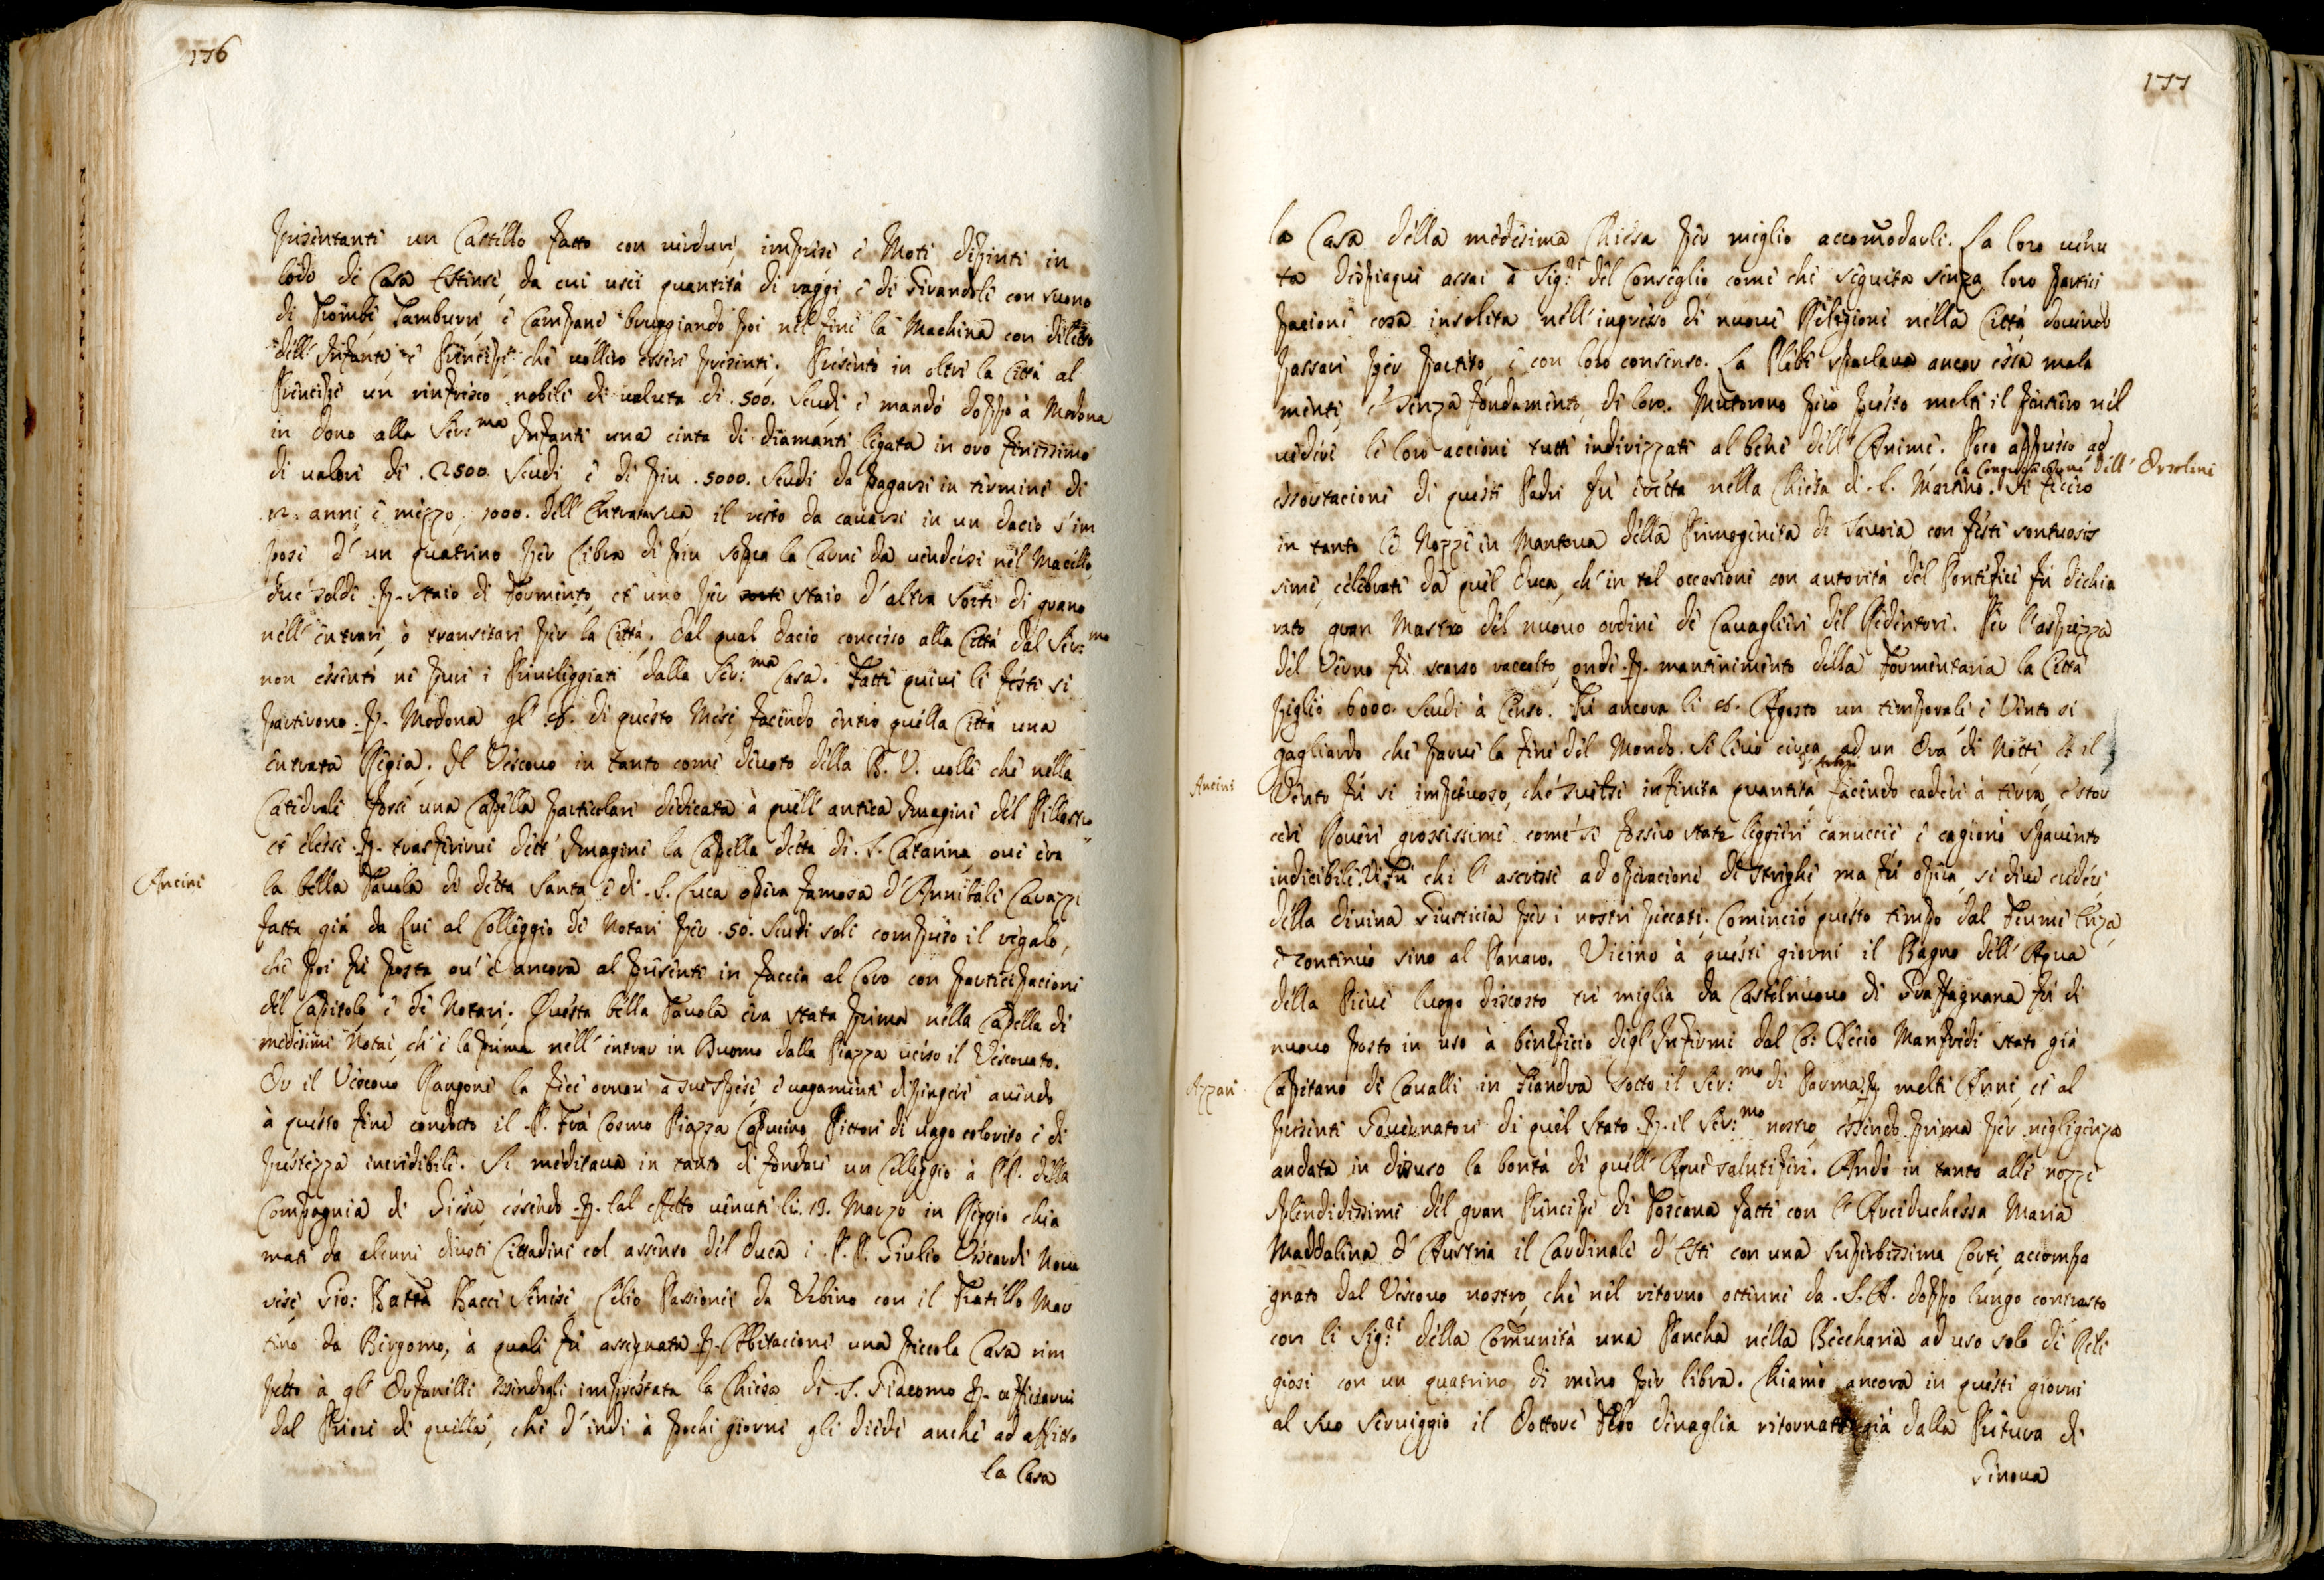 176
presentante un Castello fatto con verdure, imprese e Moti dipinti in
lode di Casa Estense, da cui uscì quantità di raggi, e di Girandole con suono
di Trombe, Tamburri, e Campane bruggiando poi nel fine la Machina con diletto
dell' Infante, e Principe, che vollero essere presenti. Presentò in oltre la Città al
Principe un rinfresco nobile di valuta di .500. Scudi, e mandò doppo à Modona
in dono alla Ser:ma Infante una cinta di diamanti ligata in oro finissimo
di valore di .2500. Scudi, e di piu .5000. Scudi da pagarsi in termine di
.12. anni e mezzo, 1000. dell' Entrata sua il resto da cavarsi in un dacio s' im
pose d' un quatrino per Libra di piu sopra la Carne da vendersi nel Macello,
due soldi p. staio di Formento, et uno per staio d' altra sorte di grano
nell' entrare, ò transitare per la Città. Dal qual dacio concesso alla Città dal Ser:mo
non esente ne pure i Privileggiati dalla Ser:ma Casa. Fatte quivi le feste si
partirono p. Modona gl' 26. di questo Mese, facendo entro quella Città una
Entrata Regia. Il Vescovo in tanto come devoto della B. V. volle che nella
Catedrale fosse una Capella particolare dedicata à quell' antica Imagine del Pillastro
et elesse p. trasferirvi dett' Imagine la Capella detta di .S. Catarina, ove era
Ancini
la bella Tavola di detta Santa, e di .S. Luca opera famosa d' Annibale Carazzi
fatta già da Lui al Colleggio de Notari per .50. Scudi soli compreso il regalo,
che poi fu posta ov' è ancora al presente in faccia al Coro con participacione
del Capitolo e de Notari. Questa bella Tavola era stata prima nella Capella di
medesimi Notai, ch' è la prima nell' entrar in Duomo dalla Piazza verso il Vescovato.
Or il Vescovo Rangone la fece ornare a sue spese, e vagamente dipingere avendo
à questo fine condotto il .P. Frà Cosmo Piazza Capucino Pittore di vago colorito e di
prestezza incredibile. Si meditava in tanto di fondare un Colleggio à PP. della
Compagnia di Giesù, essendo p. tal effetto venuti li .13. Marzo in Reggio chia
mati da alcuni devoti Cittadini col assenso del Duca i .P.P. Giulio Viscardi Nova
rese, Gio: Batta Bacci Senese, Celio Passionei da Urbino con il Fratello Mar
tino da Bergomo, à quali fù assegnata p. Abitacione una piccola Casa rim
petto à gl' Orfanelli essendogli imprestata la Chiesa di .S. Giacomo p. officiarvi
dal Priore di quella, che d' indi à pochi giorni gli diede anche ad affitto
la Casa
177
la Casa della medesima Chiesa per meglio accomodarli. La loro venu
ta dispiaque assai a Sig:ri del Conseglio come che seguita senza loro partici
pacione cosa insolita nell' ingresso di nuove Religioni nella Città dovendo
passare per partito, e con loro consenso. La Plebe sparlava ancor essa mala
mente, e senza fondamento di loro. Mutorono però presto molti il pensiero nel
vedere le loro accioni tutte indirizzate al bene dell' Anime. Poco appresso ad
la Congregacione dell' Orsoline
essortacione di questi Padri fù eretta nella Chiesa di .S. Martino. Si fecero
in tanto le Nozze in Mantova della Primogenita di Savoia con feste sontuosis
sime, celebrate da quel Duca, ch' in tal occasione con autorità del Pontefice fù dichia
rato gran Mastro del nuovo ordine de Cavaglieri del Redentore. Per l' asprezza
del Verno fù scarso raccolto, onde p. mantenimento della Formentaria la Città
piglio .6000. Scudi à Censo. Fù ancora li 26. Agosto un temporale e Vento si
gagliardo che parve la fine del Mondo. Si levò circa ad un Ora di Notte, et il
Ancini
Vento fù si impetuoso, che svelse infinita quantità d' Arbori facendo cadere à terra, e stor
cere Roveri grossissime come se fossero state leggiere canuccie e cagionò spavento
indicibile. Vi Fù chi l' ascrisse ad operacione di Strighe, ma fù opera, si deve credere
della divina Giusticia per i nostri peccati. Cominciò questo tempo dal Fiume Enza,
e continuò sino al Panaro. Vicino à questi giorni il Bagno dell' Aqua
della Pieve luogo discosto tre miglia da Castelnuovo di Graffagnana fù di
nuovo posto in uso à beneficio degl' Infermi dal C: Alecio Manfredi stato già
Azzari
Capitano di Cavalli in Fiandra sotto il Ser:mo di Parma p. molti Anni, et al
presente Governatore di quel Stato p. il Ser:mo nostro, essendo prima per negligenza
andata in disuso la bontà di quell' Aque salutifere. Andò in tanto alle nozze
splendidissime del gran Principe di Toscana fatte con l' Arciduchessa Maria
Maddalena d' Austria il Cardinale d' Este con una superbissima Corte, accompa
gnato dal Vescovo nostro, che nel ritorno ottenne da .S.A. doppo lungo contrasto
con li Sig:ri della Comunità una Pancha nella Beccharia ad uso solo di Reli
giosi con un quatrino di meno per libra. Chiamò ancora in questi giorni
al suo serviggio il Dottore Febo Denaglia ritornato già dalla Pretura di
Genova